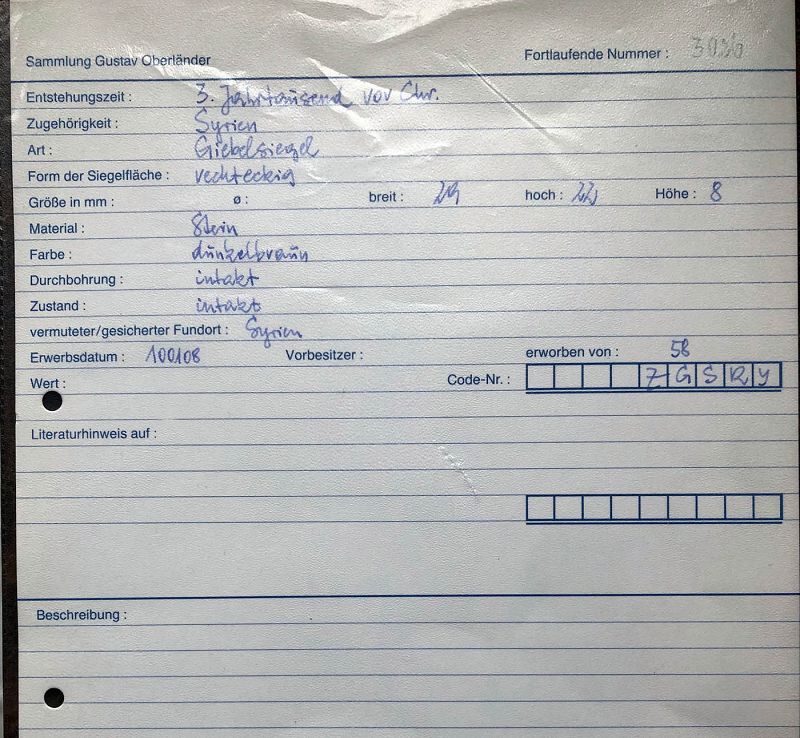 Sammlung Gustav Oberländer Fortlaufende Nummer : 3036
Entstehungszeit : 3. Jahrtausend vor Chr.
Zugehörigkeit : Syrien
Art : Giebelsiegel
Form der Siegelfläche : rechteckig
Größe in mm : ø : breit : hoch : Höhe : 8
Material : Stein
Farbe : dunkelbraun
Durchbohrung : intakt
Zustand : intakt
vermuteter/gesicherter Fundort : Syrien
Erwerbsdatum : 100108 Vorbesitzer : erworben von : 58
Wert : Code-Nr. : Z G S R Y
Literaturhinweis auf :
Beschreibung :